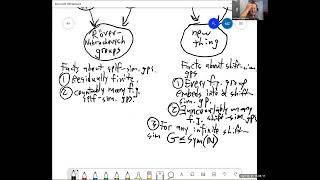 Röver-
Nekrashevych
groups
new
thing
Facts about self-sim. gps.
① Residually finite.
② Countably many f.g.
self-sim. gps.
Facts about shift-sim
gps
① Every f.g. group
embeds into a shift-
sim. gp.
② Uncountably many
f.g. shift-sim. gps
③ For any infinite shift-
sim G ≤ Sym(N)